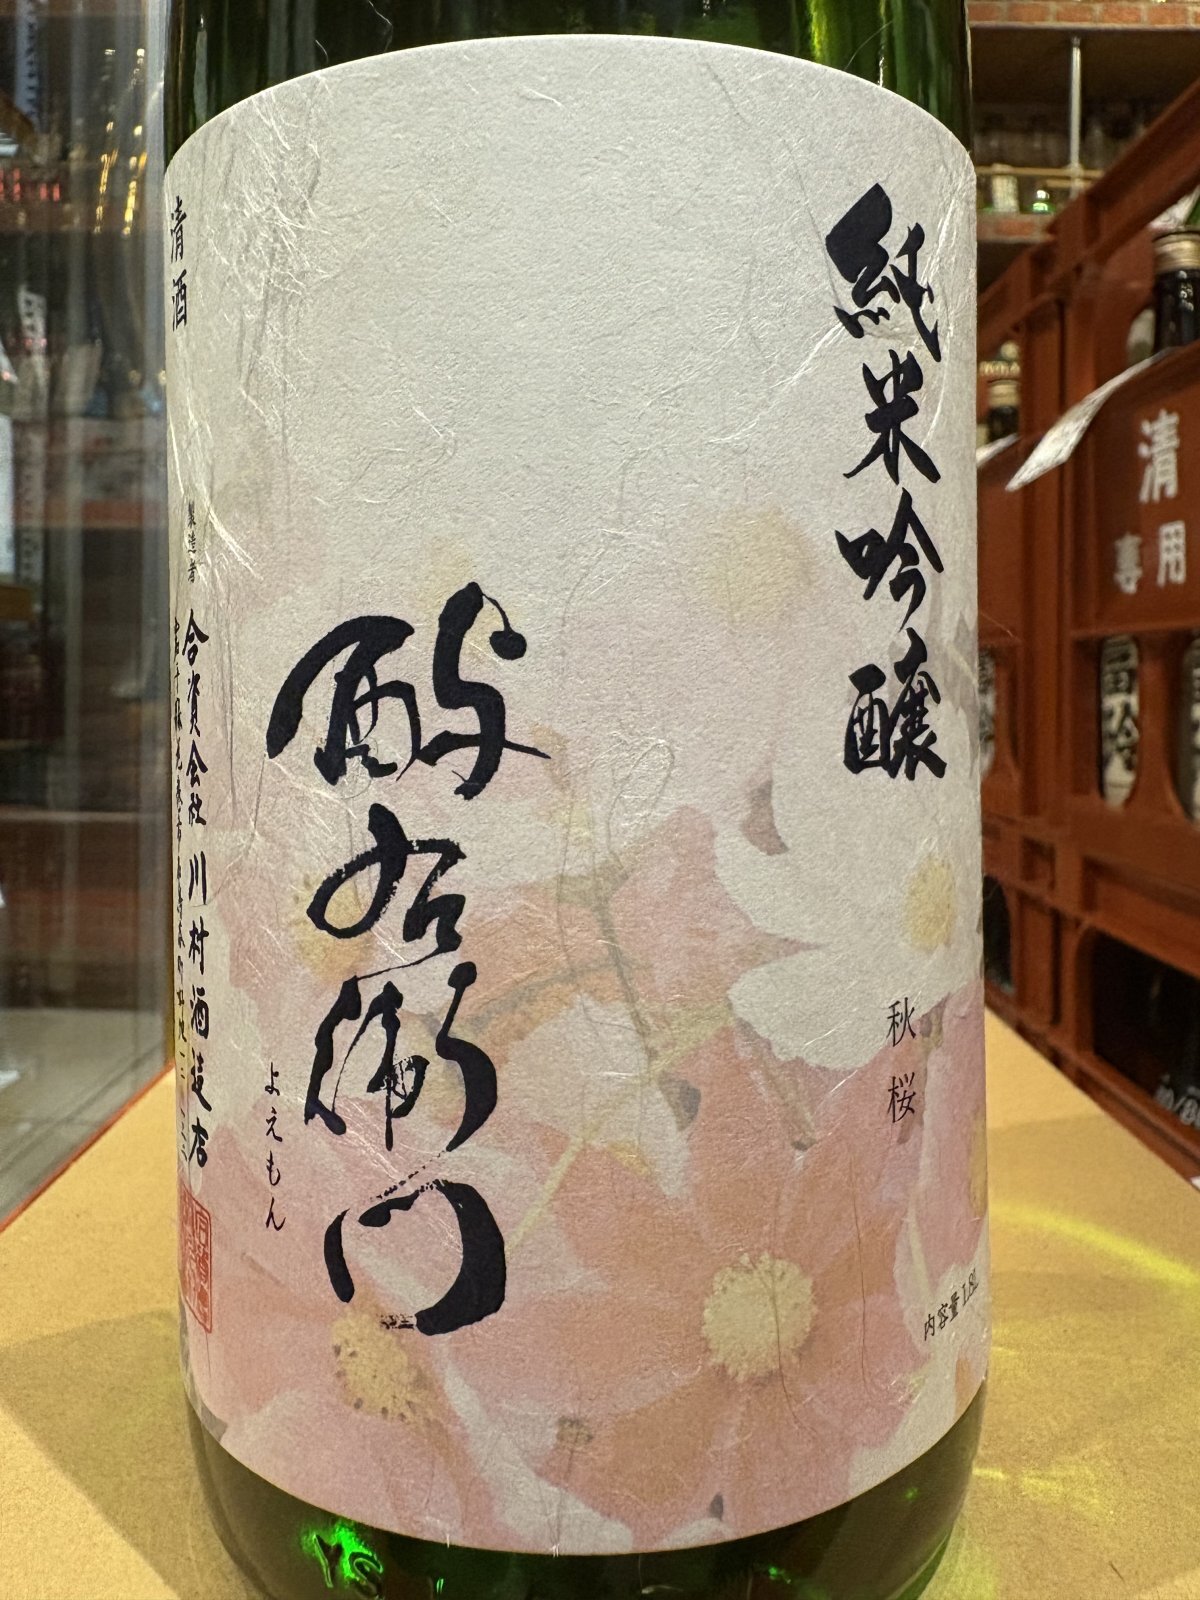 純米吟醸
秋桜
内容量 1.8L
酔右衛門
よえもん
清酒
製造者 合資会社 川村酒造店
清
専用